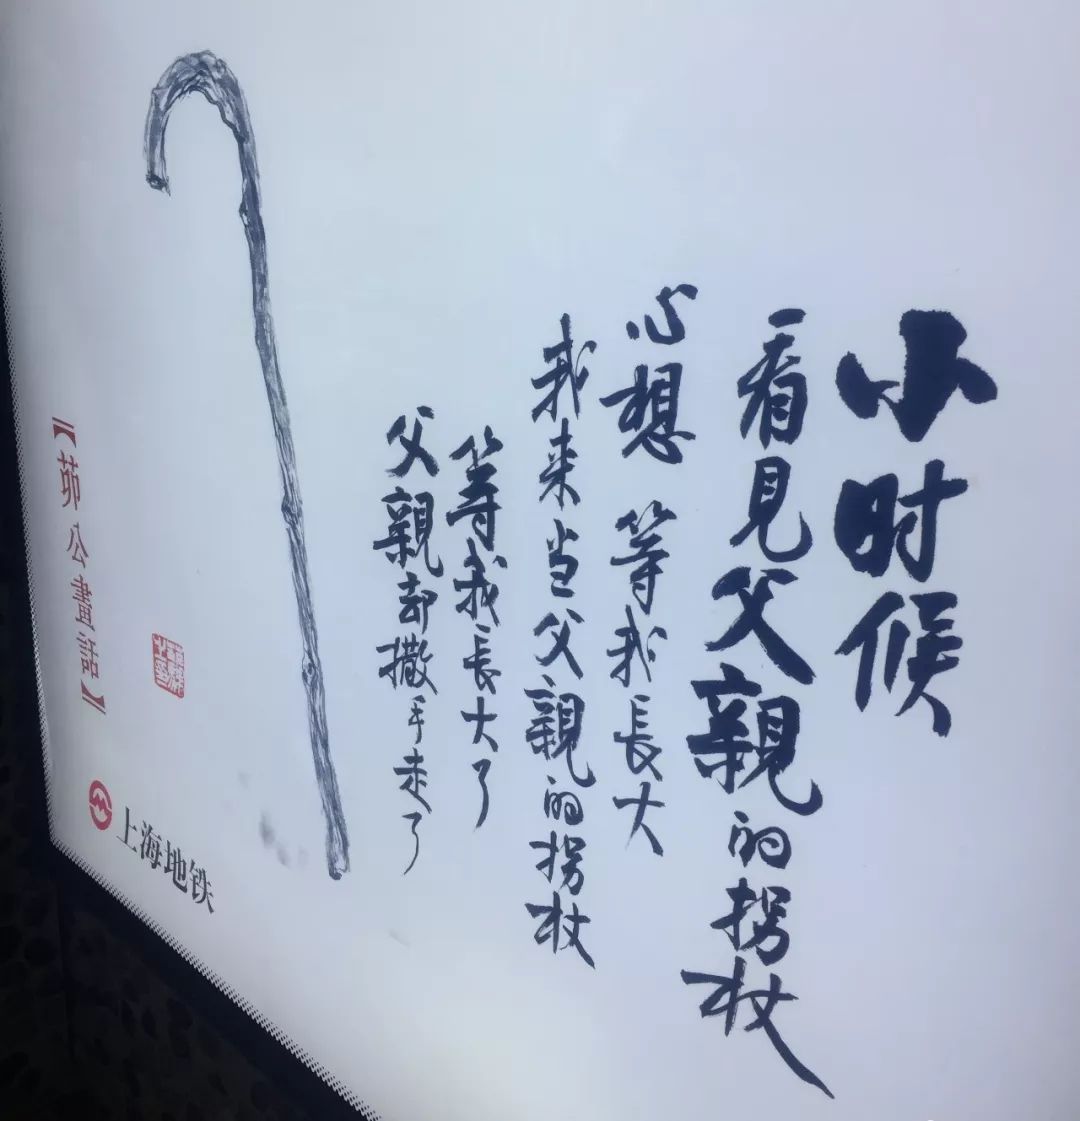 小时候
看見父親的拐杖
心想 等我長大
我来当父親的拐杖
等我長大了
父親却撒手走了
【茆公畫話】
上海地铁